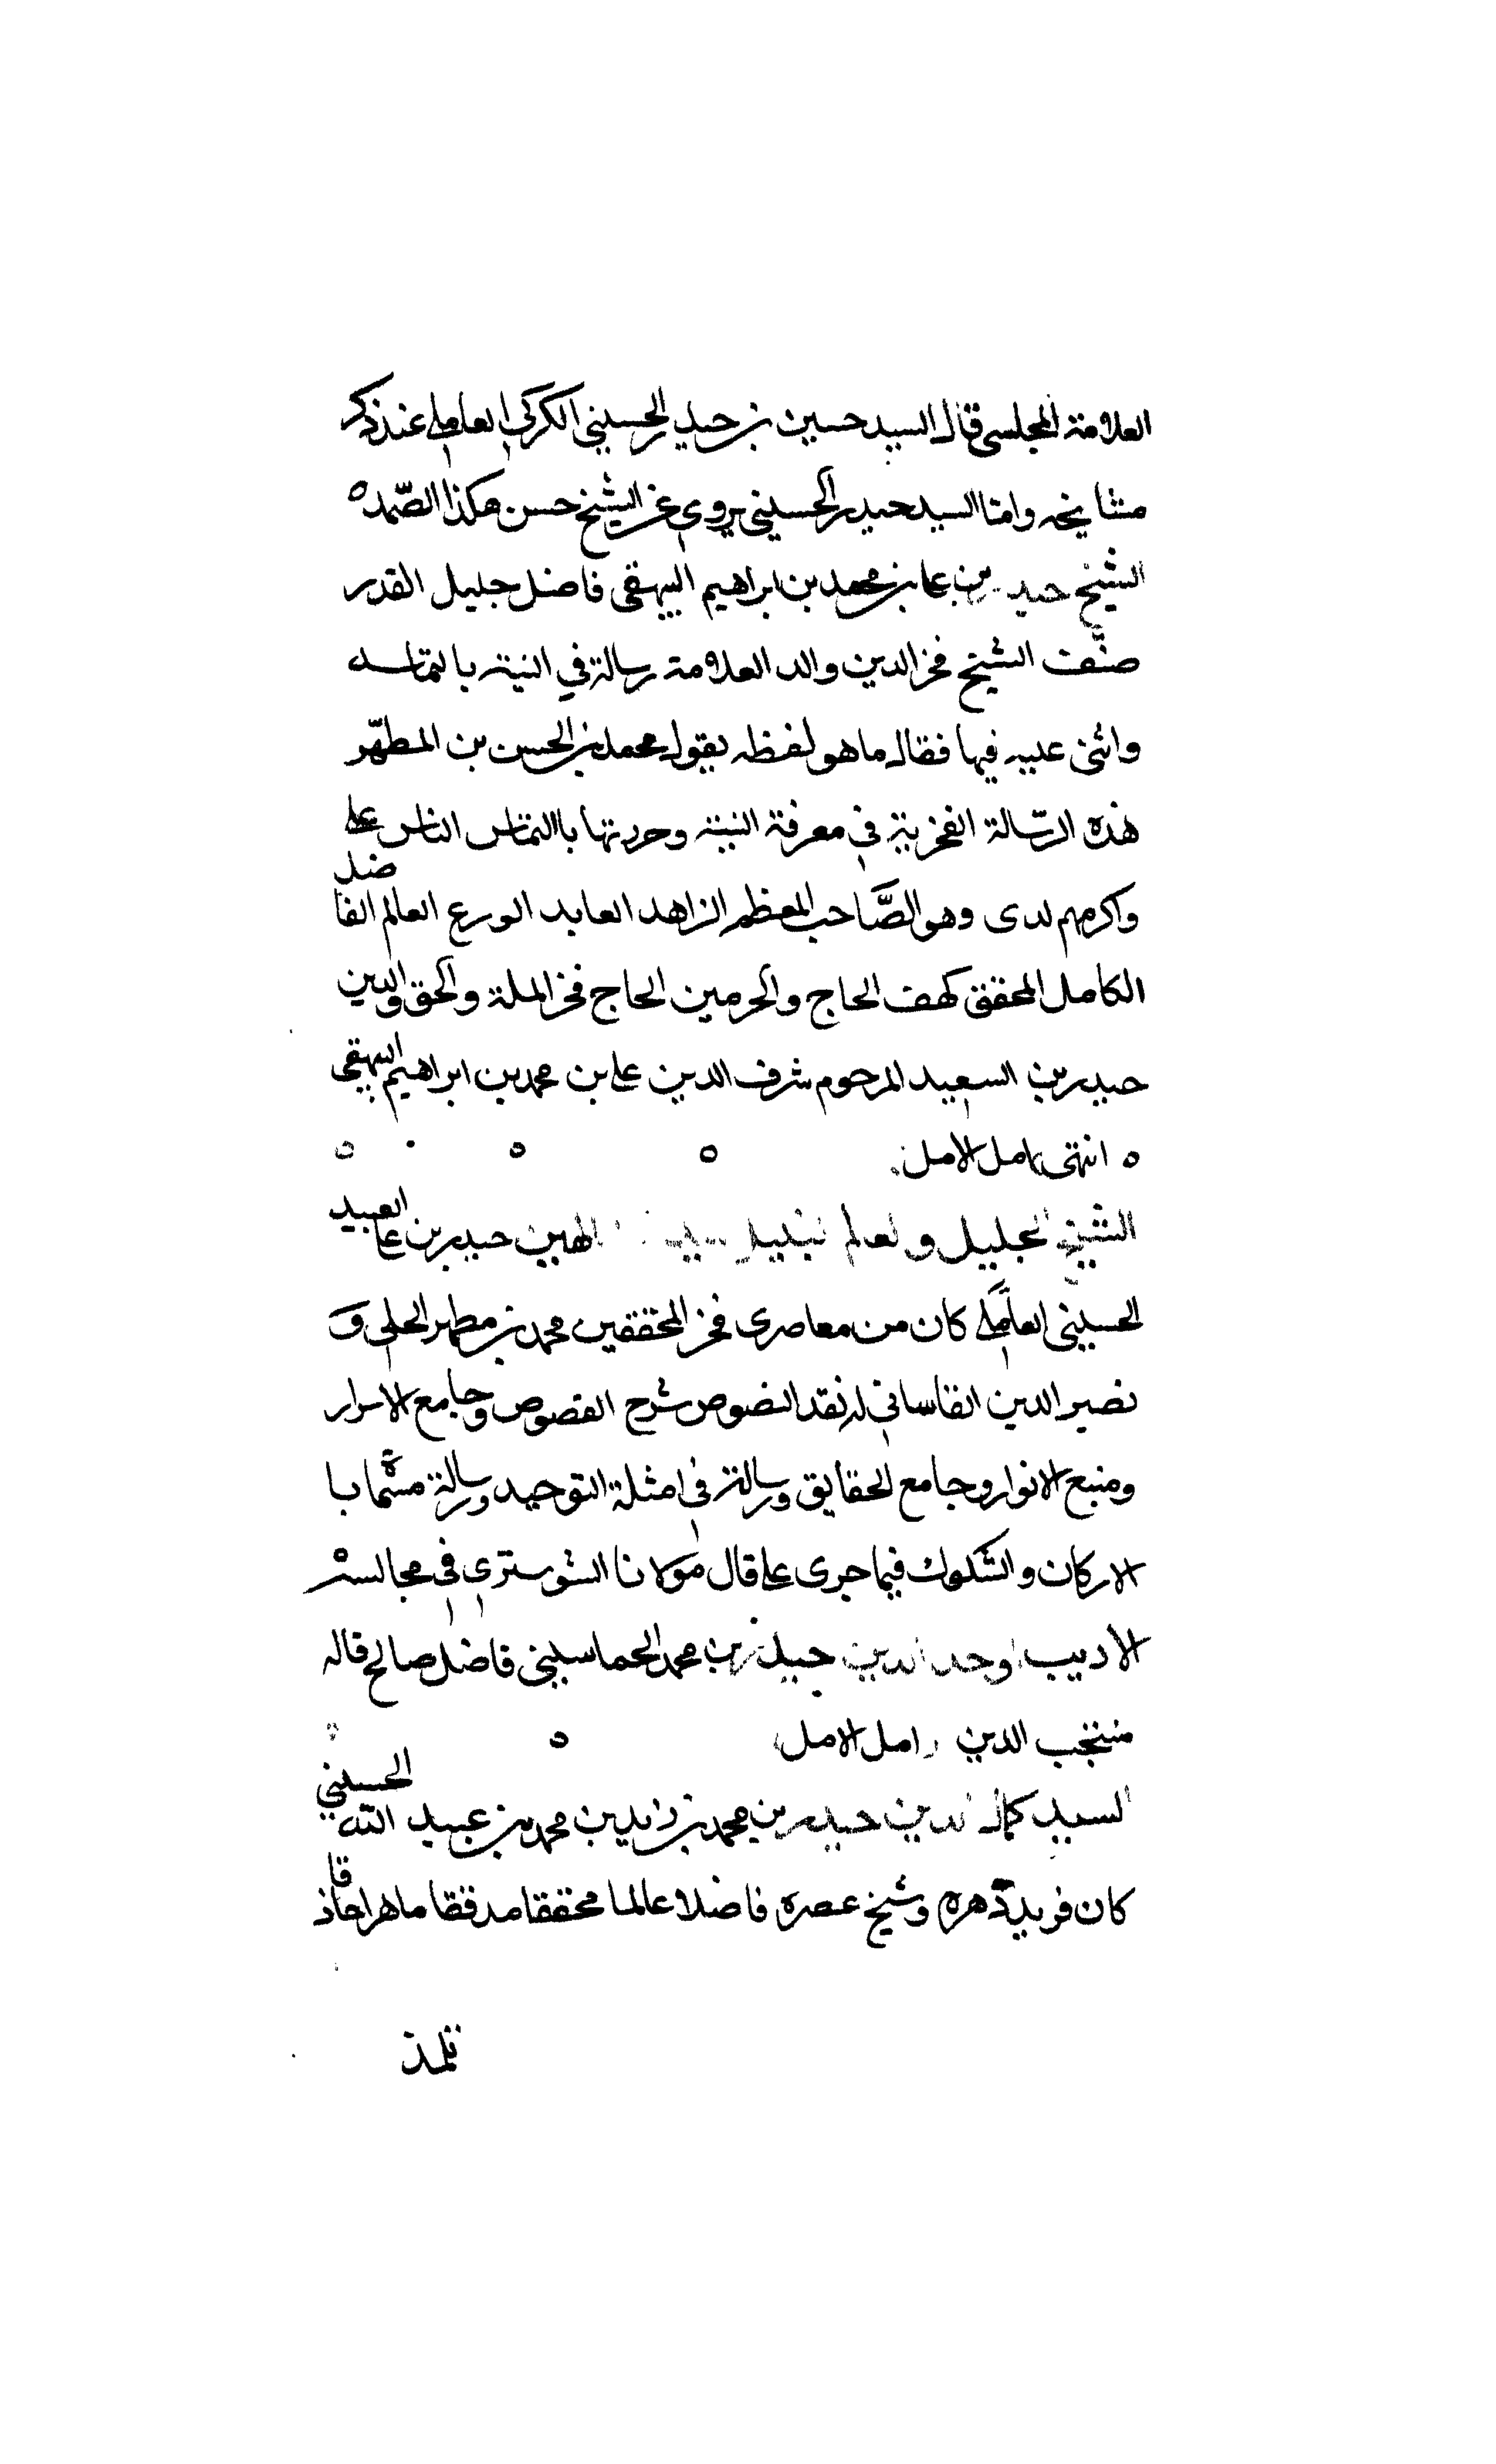 العلامة المجلسى قال السيد حسين بن حيدر الحسيني الكركي العاملي عند ذكر
مشايخه واما السيد حيدر الحسيني يروي عن الشيخ حسن هكذا الصمد ه
الشيخ حيدر بن علي بن محمد بن ابراهيم البيهقى فاضل جليل القدر
صنّف الشيخ فخر الدين والد العلامة رسالة في النية بالتماسه
واثنى عليه فيها فقال ما هو لفظه يقول محمد بن الحسن بن المطهّر
هذه الرّسالة الفخرية في معرفة النية وحررتها باالتماس الناس علي
واكرمهم لدى وهو الصَّاحب المعظم الزاهد العابد الورع العالم الفاضل
الكامل المحقق كهف الحاج والحرمين الحاج فخر الملة والحق والدين
حيدر بن السعيد المرحوم شرف الدين علي بن محمد بن ابراهيم البيهقى
ه انتهى امل الامل ه ه ه
الشيخ الجليل والعالم النبيل الهين حيدر بن علي العبيد
الحسيني العاملي كان من معاصرى فخر المحققين محمد بن مطهر الحلي و
نصير الدين القاساني له نقد النصوص شرح الفصوص وجامع الاسرار
ومنبع الانوار وجامع الحقايق ورسالة في امثلة التوحيد ورسالة مسماة با
الاركان والشكوك فيما جرى علي قال مولانا الشوسترى في مجالسه
الاديب اوحد الدين حيدر بن محمد الحماسيني فاضل صالح قاله
منتجب الدين امل الامل ه
السيد كمال الدين حيدر بن محمد بن زيد بن محمد بن عبيد الله الحسيني
كان فريد دهره وشيخ عصره فاضلا عالما محققا مدققا ماهرا حاذقا
تلمذ